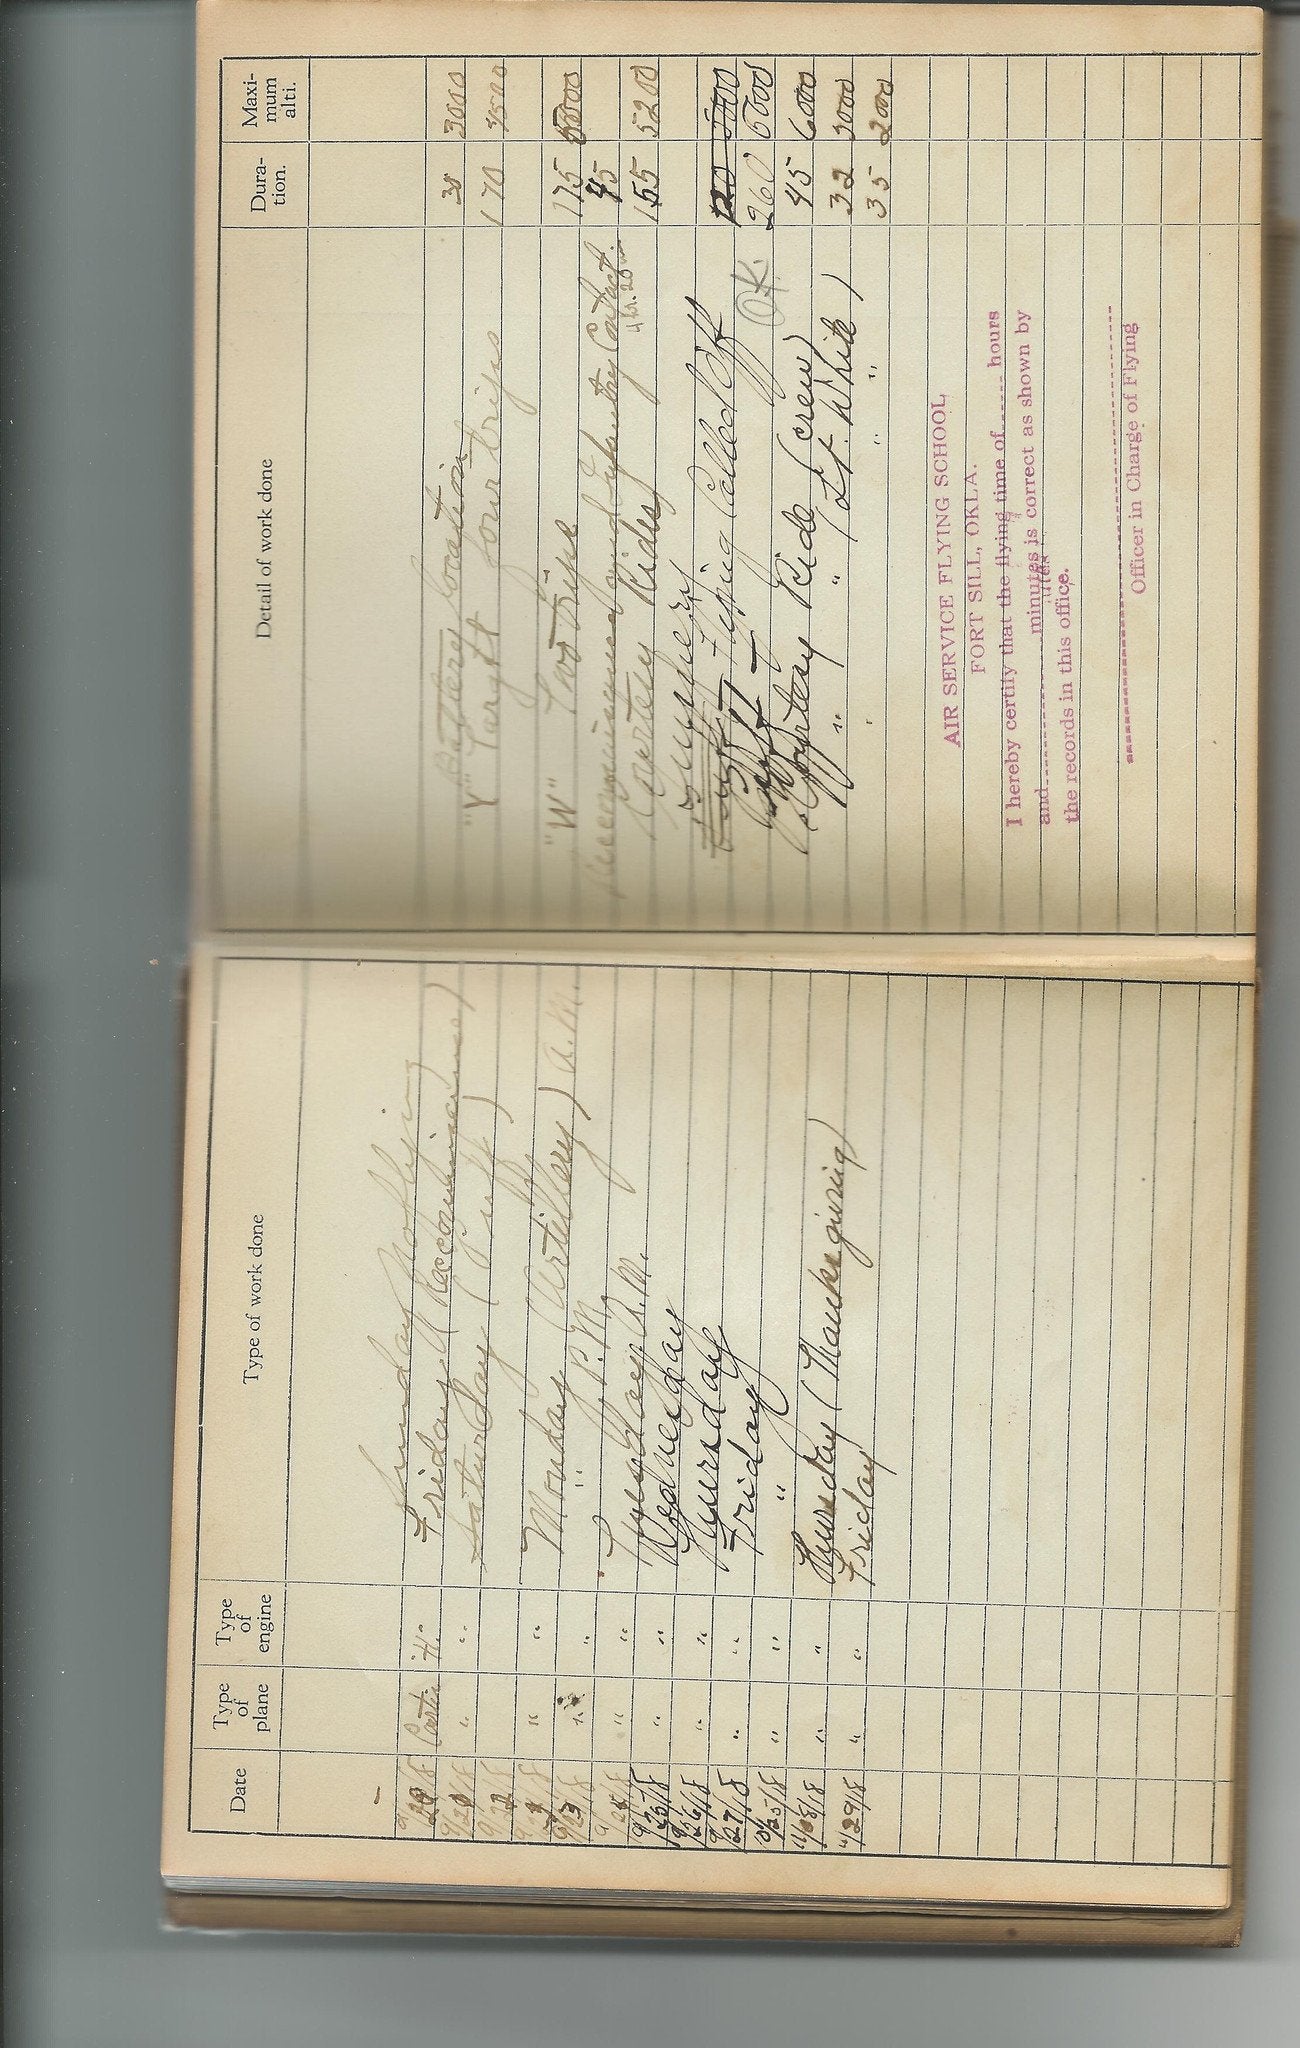 Date
Type of plane
Type of engine
Type of work done
Sunday No flying
9/20/18 Curtis "H" Friday (Reconnaissance)
" " Saturday (Puff)
" " Monday (Artillery) A.M.
" " " P.M.
" " Tuesday A.M.
9/25/18 " " Wednesday
9/26/18 " " Thursday
9/27/18 " " Friday
10/25/18 " " "
11/28/18 " " Thursday (Thanksgiving)
11/29/18 " " Friday
Detail of work done
Dura- tion.
Maxi- mum alti.
Battery location 35 3000
"Y" Target four trips 170 3500
"W" Two Trips 175
Reconnaissance and Infantry Contact. 45
Courtesy Rides 4 hr. 20 155 5200
Surgery
Puff Flying Called Off 120 3000
Puff O.K. 260 5000
Courtesy Ride (crew) 45 6000
" " (Lt. White) 32 3000
" " 35 2000
AIR SERVICE FLYING SCHOOL,
FORT SILL, OKLA.
I hereby certify that the flying time of ...... hours
and .................. minutes is correct as shown by
the records in this office.
Officer in Charge of Flying